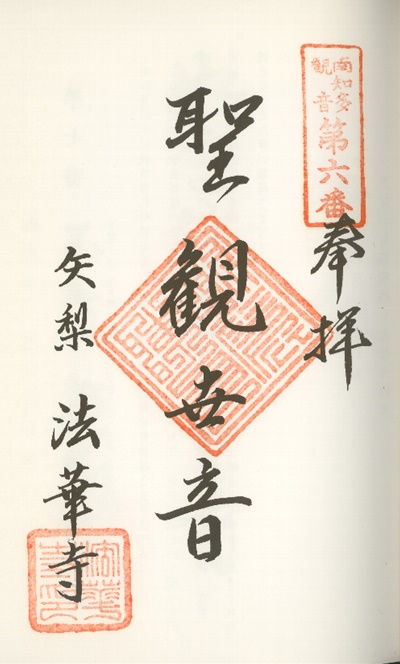 南知多
観音
第六番
奉拝
聖観世音
矢梨 法華寺